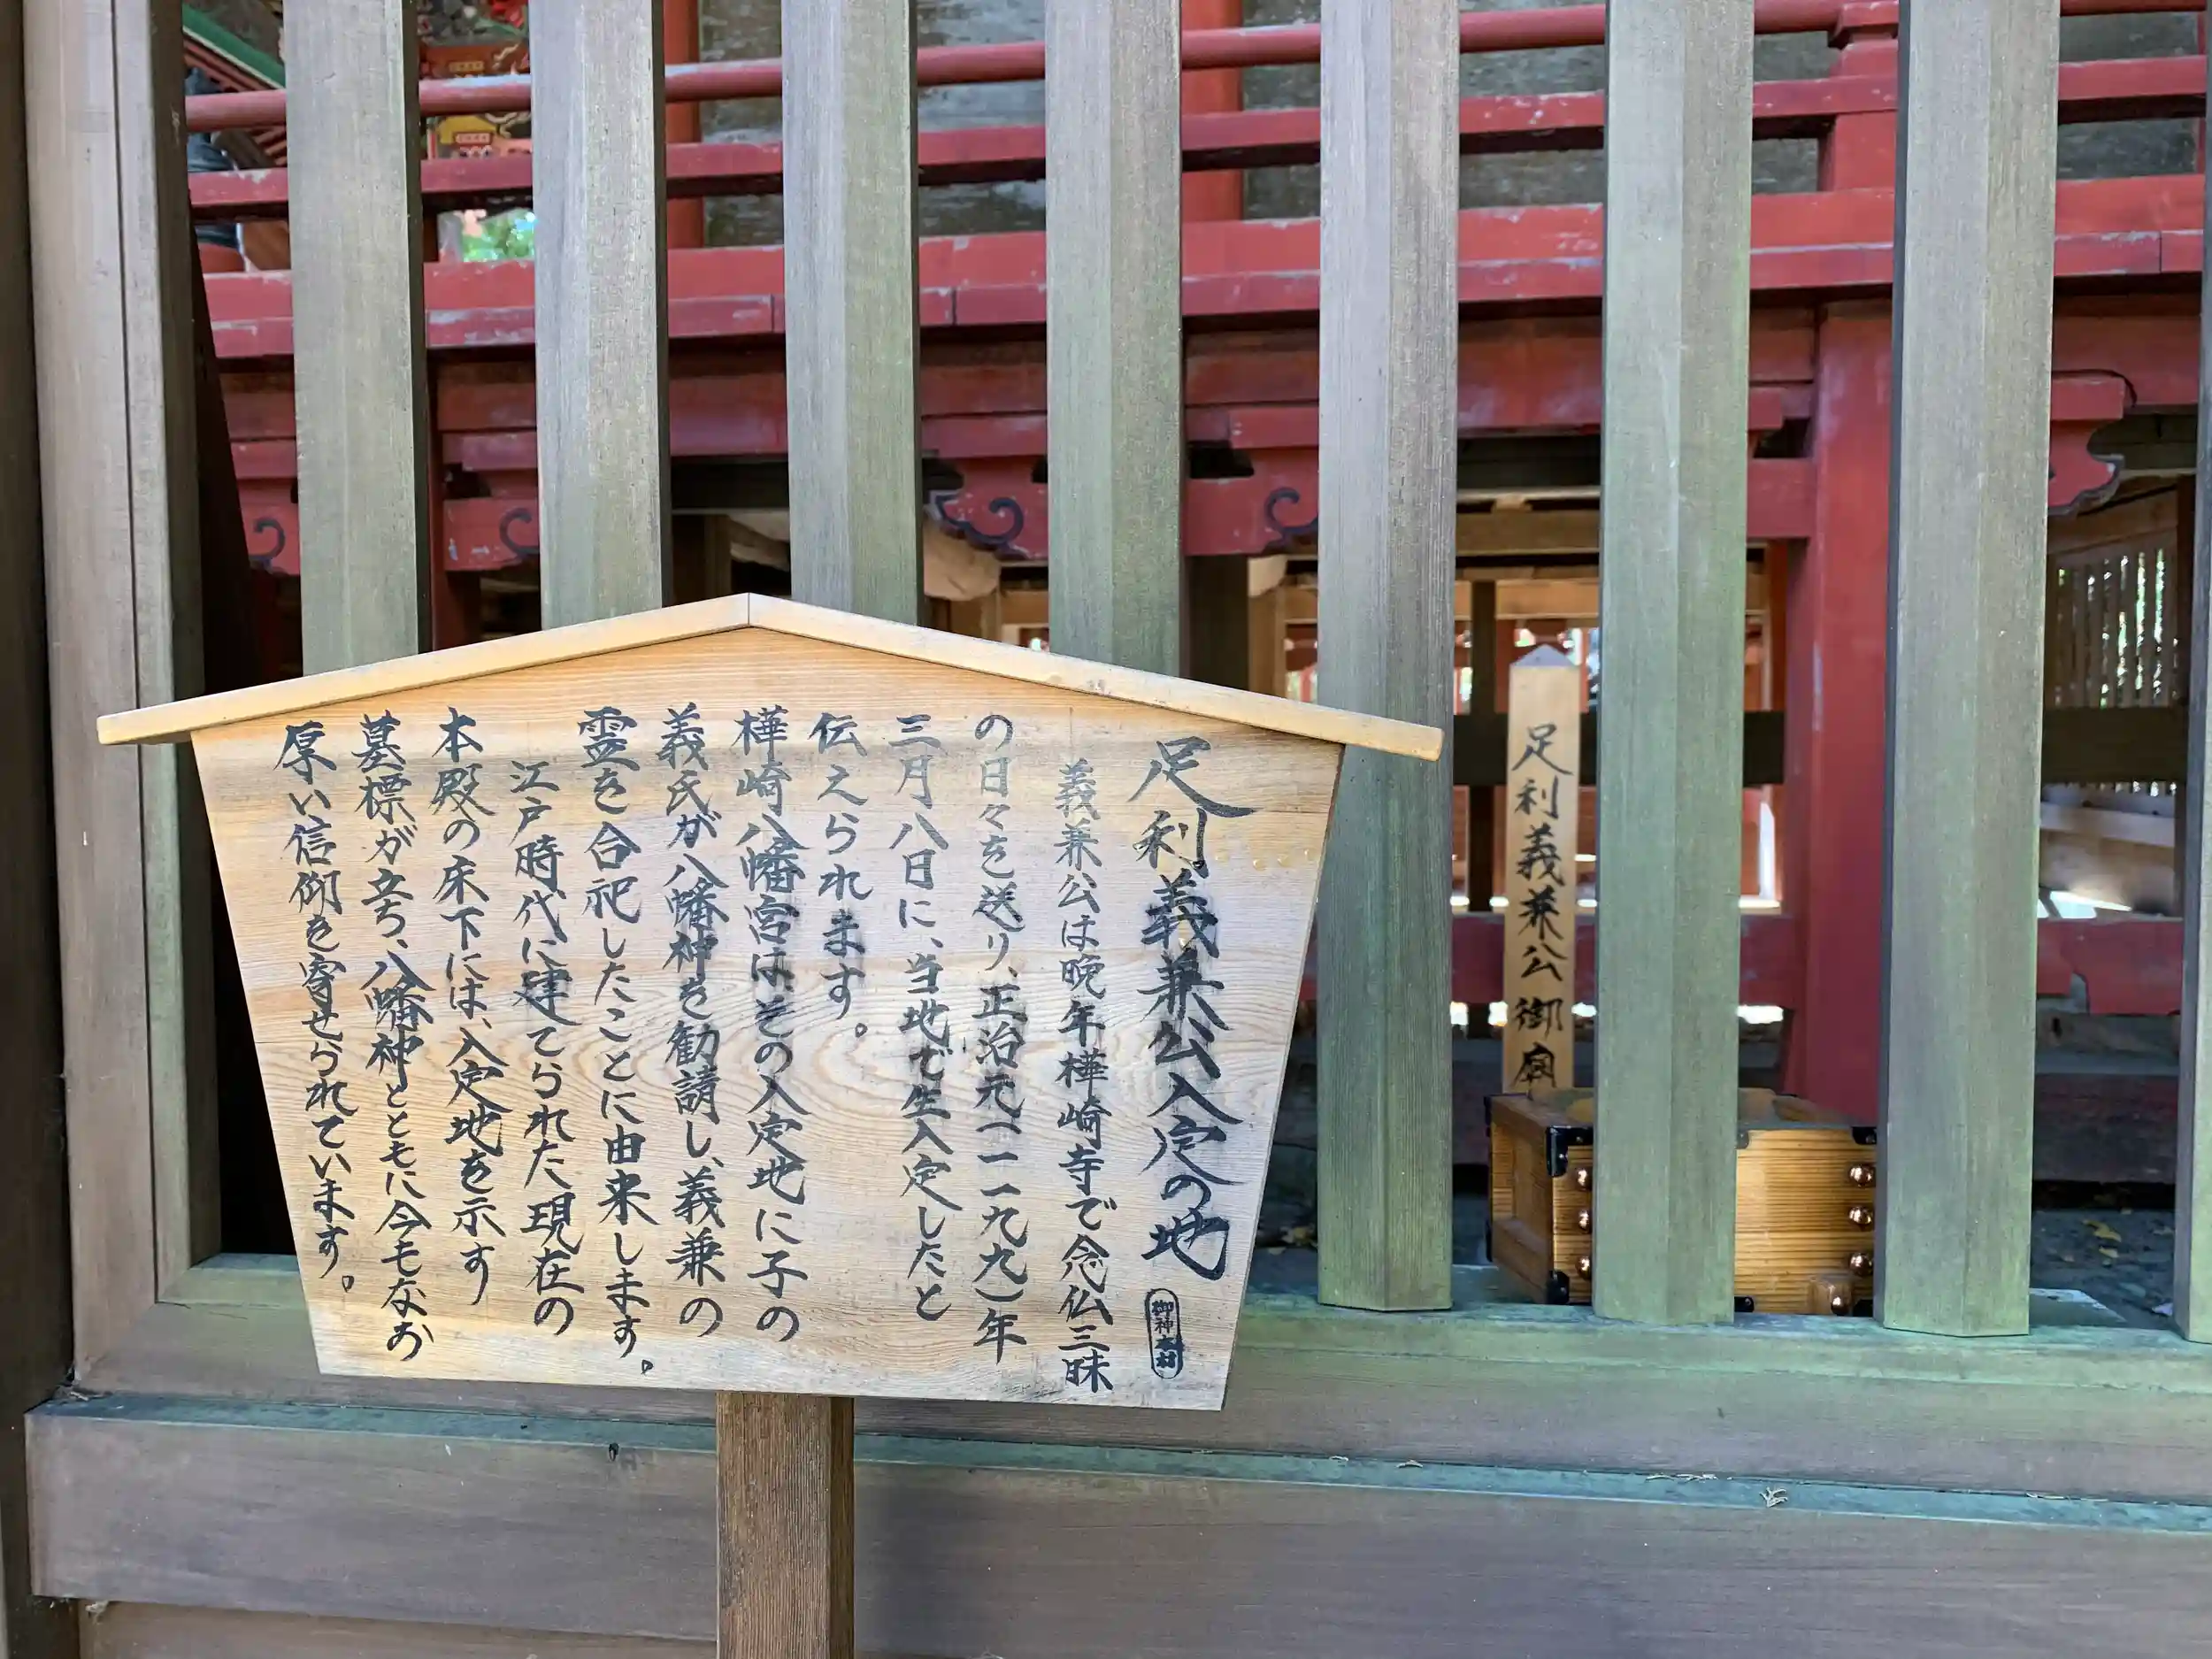 足利義兼公入定の地
御神木材
義兼公は晩年樺崎寺で念仏三昧
の日々を送り、正治元(一一九九)年
三月八日に、当地で生入定したと
伝えられます。
樺崎八幡宮は、その入定地に子の
義氏が八幡神を勧請し、義兼の
霊を合祀したことに由来します。
江戸時代に建てられた現在の
本殿の床下には、入定地を示す
墓標が立ち、八幡神とともに今もなお
厚い信仰を寄せられています。
足利義兼公御廟